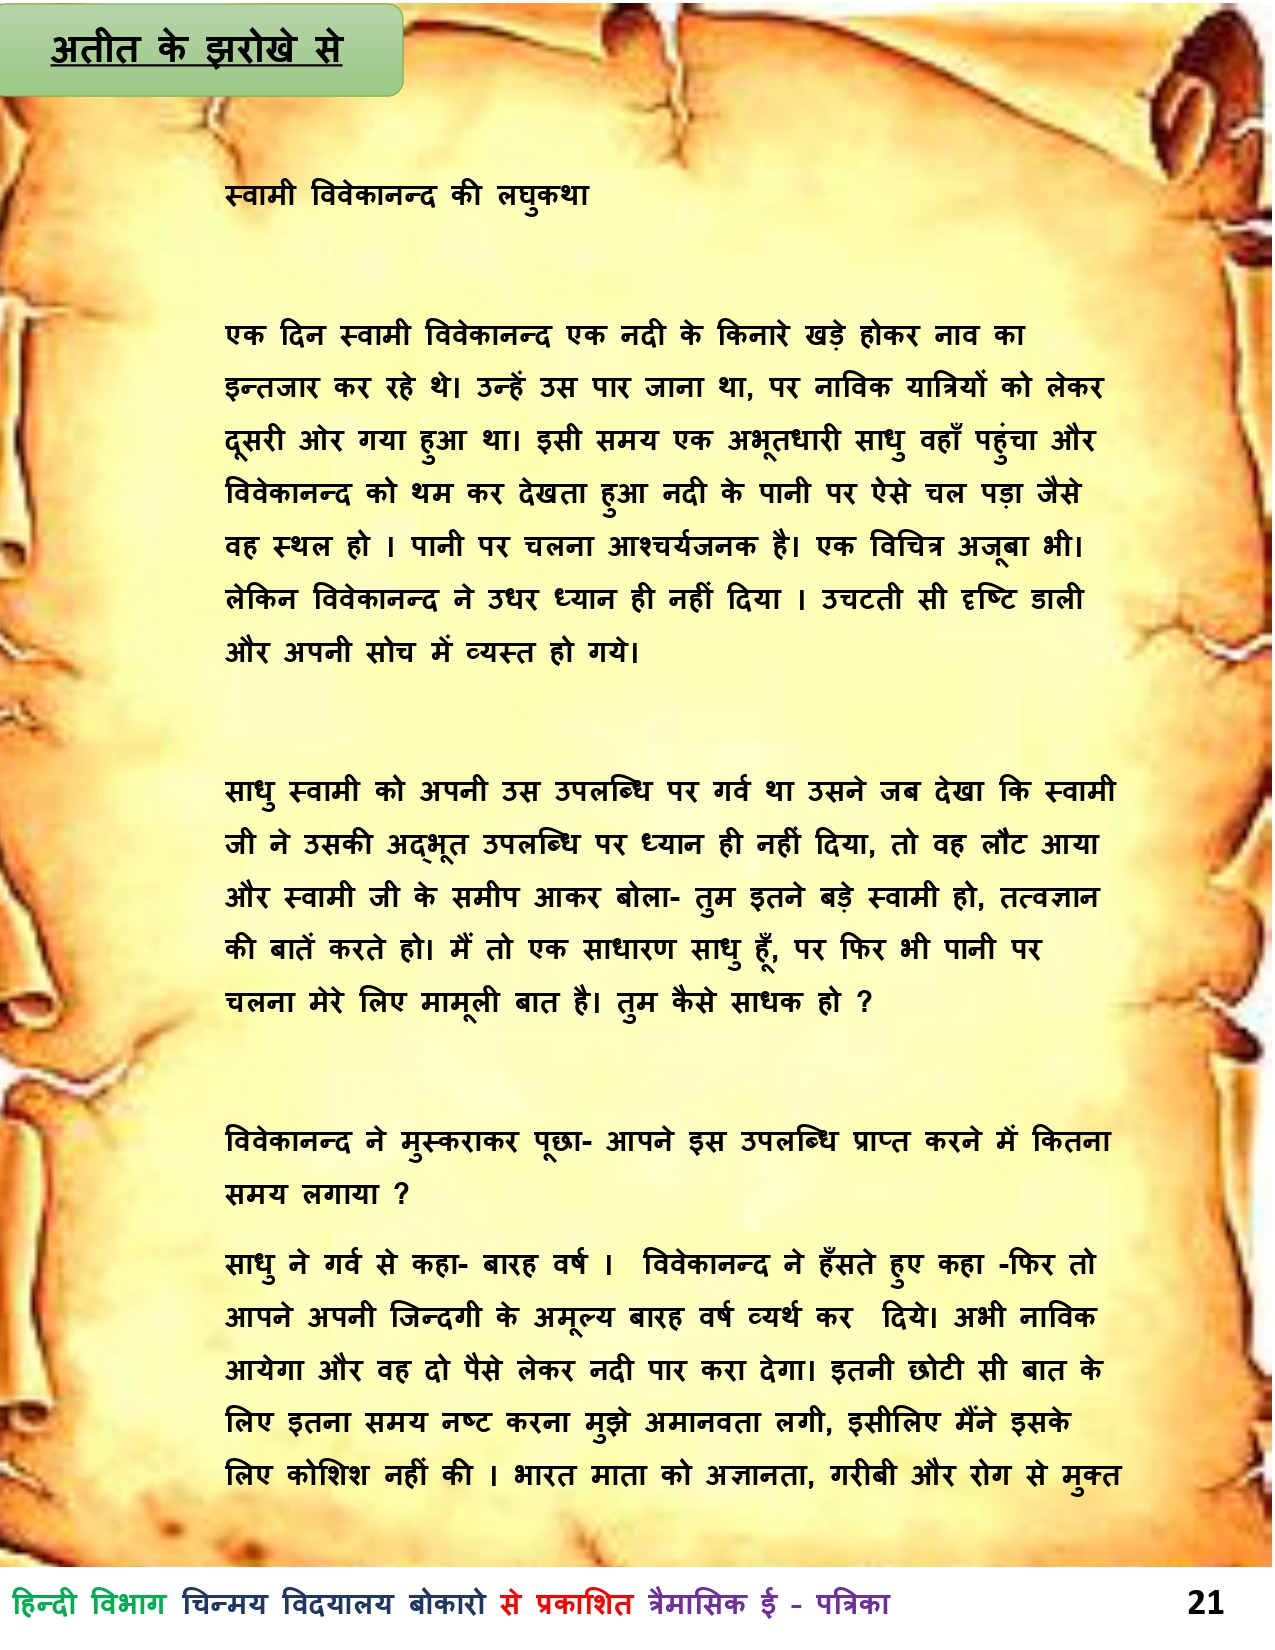 अतीत के झरोखे से
स्वामी विवेकानन्द की लघुकथा
एक दिन स्वामी विवेकानन्द एक नदी के किनारे खड़े होकर नाव का
इन्तजार कर रहे थे। उन्हें उस पार जाना था, पर नाविक यात्रियों को लेकर
दूसरी ओर गया हुआ था। इसी समय एक अभूतधारी साधु वहाँ पहुंचा और
विवेकानन्द को थम कर देखता हुआ नदी के पानी पर ऐसे चल पड़ा जैसे
वह स्थल हो । पानी पर चलना आश्चर्यजनक है। एक विचित्र अजूबा भी।
लेकिन विवेकानन्द ने उधर ध्यान ही नहीं दिया । उचटती सी दृष्टि डाली
और अपनी सोच में व्यस्त हो गये।
साधु स्वामी को अपनी उस उपलब्धि पर गर्व था उसने जब देखा कि स्वामी
जी ने उसकी अद्‌भूत उपलब्धि पर ध्यान ही नहीं दिया, तो वह लौट आया
और स्वामी जी के समीप आकर बोला- तुम इतने बड़े स्वामी हो, तत्वज्ञान
की बातें करते हो। मैं तो एक साधारण साधु हूँ, पर फिर भी पानी पर
चलना मेरे लिए मामूली बात है। तुम कैसे साधक हो ?
विवेकानन्द ने मुस्कराकर पूछा- आपने इस उपलब्धि प्राप्त करने में कितना
समय लगाया ?
साधु ने गर्व से कहा- बारह वर्ष । विवेकानन्द ने हँसते हुए कहा -फिर तो
आपने अपनी जिन्दगी के अमूल्य बारह वर्ष व्यर्थ कर दिये। अभी नाविक
आयेगा और वह दो पैसे लेकर नदी पार करा देगा। इतनी छोटी सी बात के
लिए इतना समय नष्ट करना मुझे अमानवता लगी, इसीलिए मैंने इसके
लिए कोशिश नहीं की । भारत माता को अज्ञानता, गरीबी और रोग से मुक्त
हिन्दी विभाग चिन्मय विदयालय बोकारो से प्रकाशित त्रैमासिक ई – पत्रिका 21